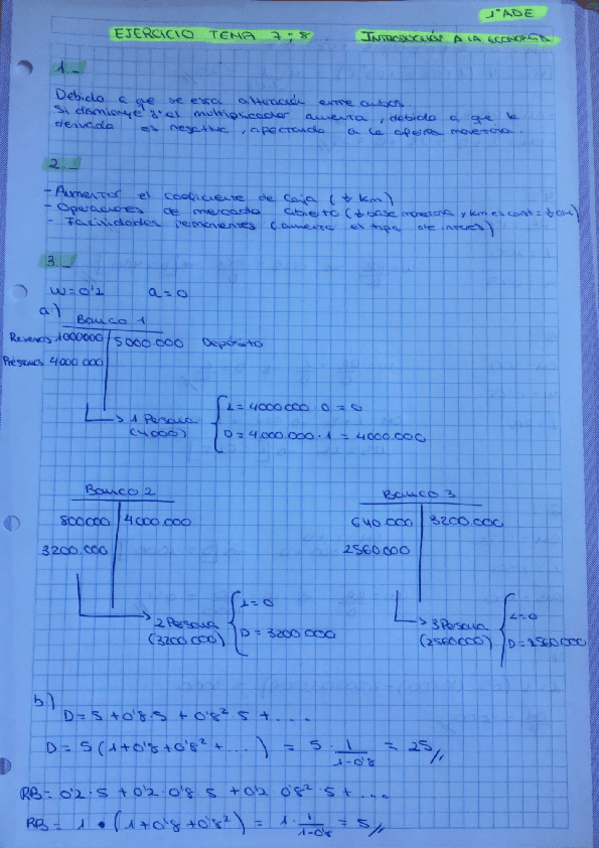 1º ADE
EJERCICIO TEMA 7 y 8. INTRODUCCIÓN A LA ECONOMÍA
1_
Debido a que se esa entre ambos.
Si disminuye "a" el multiplicador aumenta, debido a que la
derivada es negativa, afectando a la oferta monetaria.
2_
- Aumentar el coeficiente de caja (↓ km)
- Operaciones de mercado abierto (↓ base monetaria, km es const = ↓ OM)
- Facilidades permanentes (aumenta el tipo de interés)
3_
w=0'2 a=0
a)
Banco 1
Reservas 1000000 5000.000 Depósito
Préstamos 4000 000
1 Persona
(4000)
L = 4000000 · 0 = 0
D = 4.000.000 · 1 = 4000.000
Banco 2
800000 4000.000
3200.000
2 Persona
(3200.000)
L=0
D = 3200.000
Banco 3
640.000 3200.000
2560.000
3 Persona
(2560.000)
L=0
D=2560.000
b)
D = 5 + 0'8·5 + 0'8²·5 + ....
D = 5 (1+0'8+0'8²+...) = 5 · 1/(1-0'8) = 25//
RB = 0'2·5 + 0'2·0'8·5 + 0'2·0'8²·5 + ...
RB = 1 • (1+0'8+0'8²) = 1 · 1/(1-0'8) = 5//